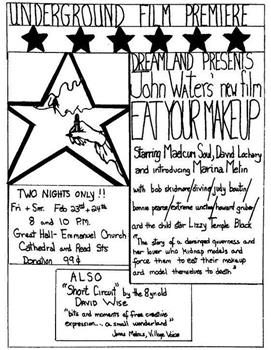 UNDERGROUND FILM PREMIERE
DREAMLAND PRESENTS
John Waters' new film
EAT YOUR MAKEUP
Starring Maelcum Soul, David Lochary
and introducing Marina Melin
with bob skidmore/divine/judy boutin/
bonnie pearce/extreme unction/howard gruber/
and the child star Lizzy Temple Black
"The story of a deranged governess and
her lover who kidnap models and
force them to eat their makeup
and model themselves to death."
TWO NIGHTS ONLY!!
Fri + Sat. Feb 23rd + 24th
8 and 10 P.M.
Great Hall - Emmanuel Church
Cathedral and Read Sts
Donation 99¢
ALSO
"Short Circuit" by the 8yr old
DAVID WISE
"bits and moments of free creative
expression... a small wonderland"
Jonas Mekas, Village Voice